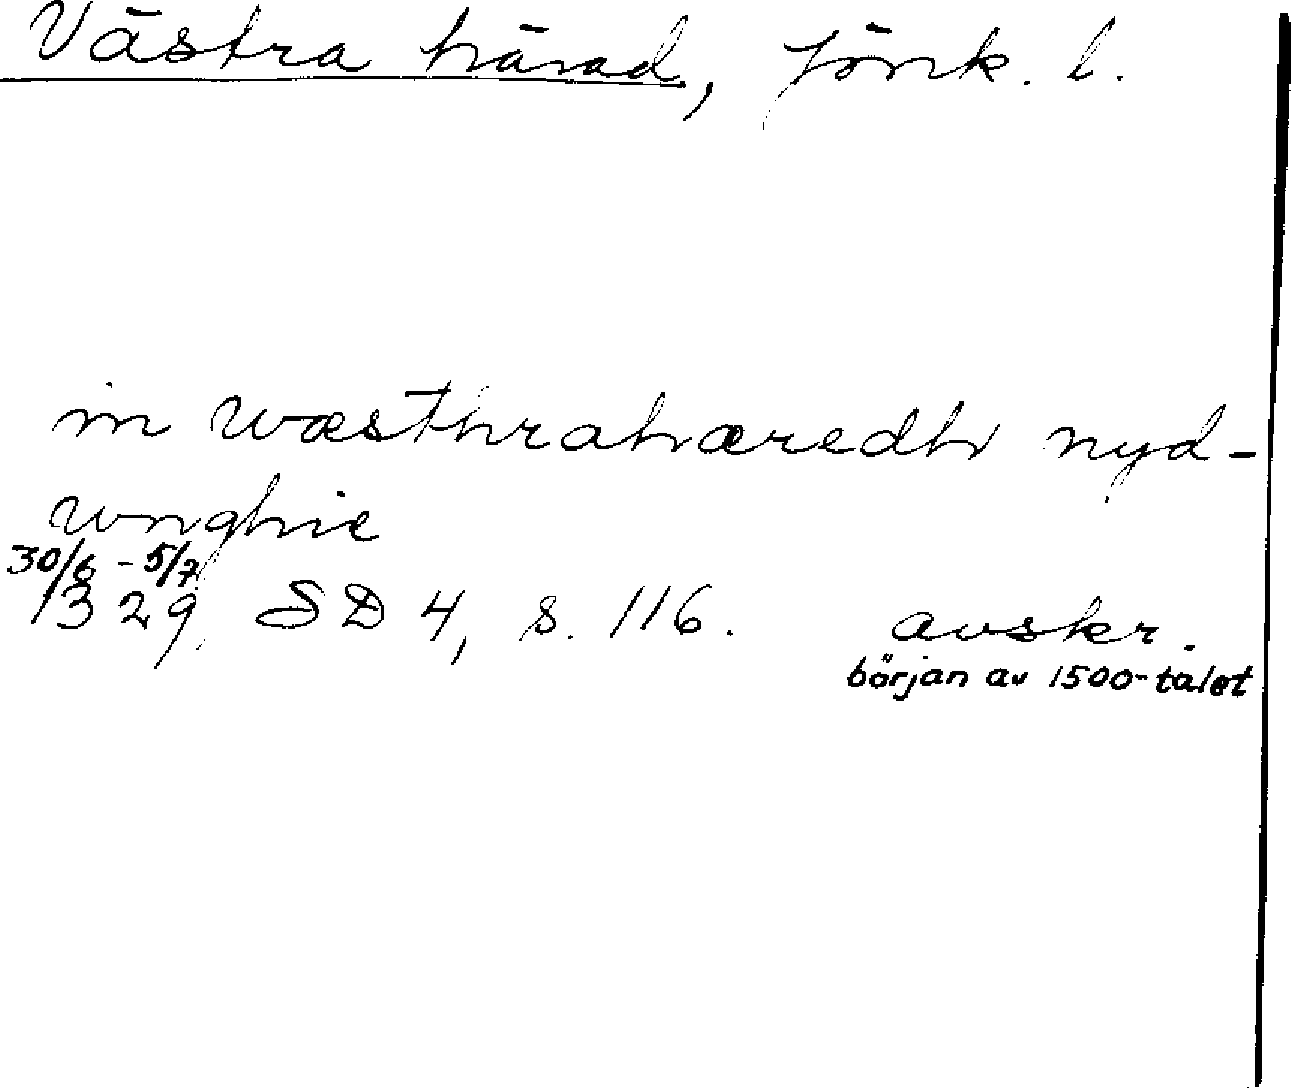 Västra härad, Jönk. l.
in wæsthrahæredh nyd-
unghie
30/6 - 5/7
1329, SD 4, s. 116. avskr.
början av 1500-talet